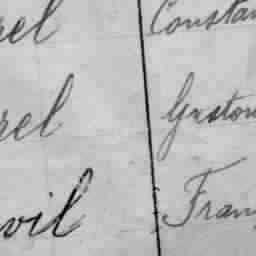 rel Constan
rel Gaston
vil Fran